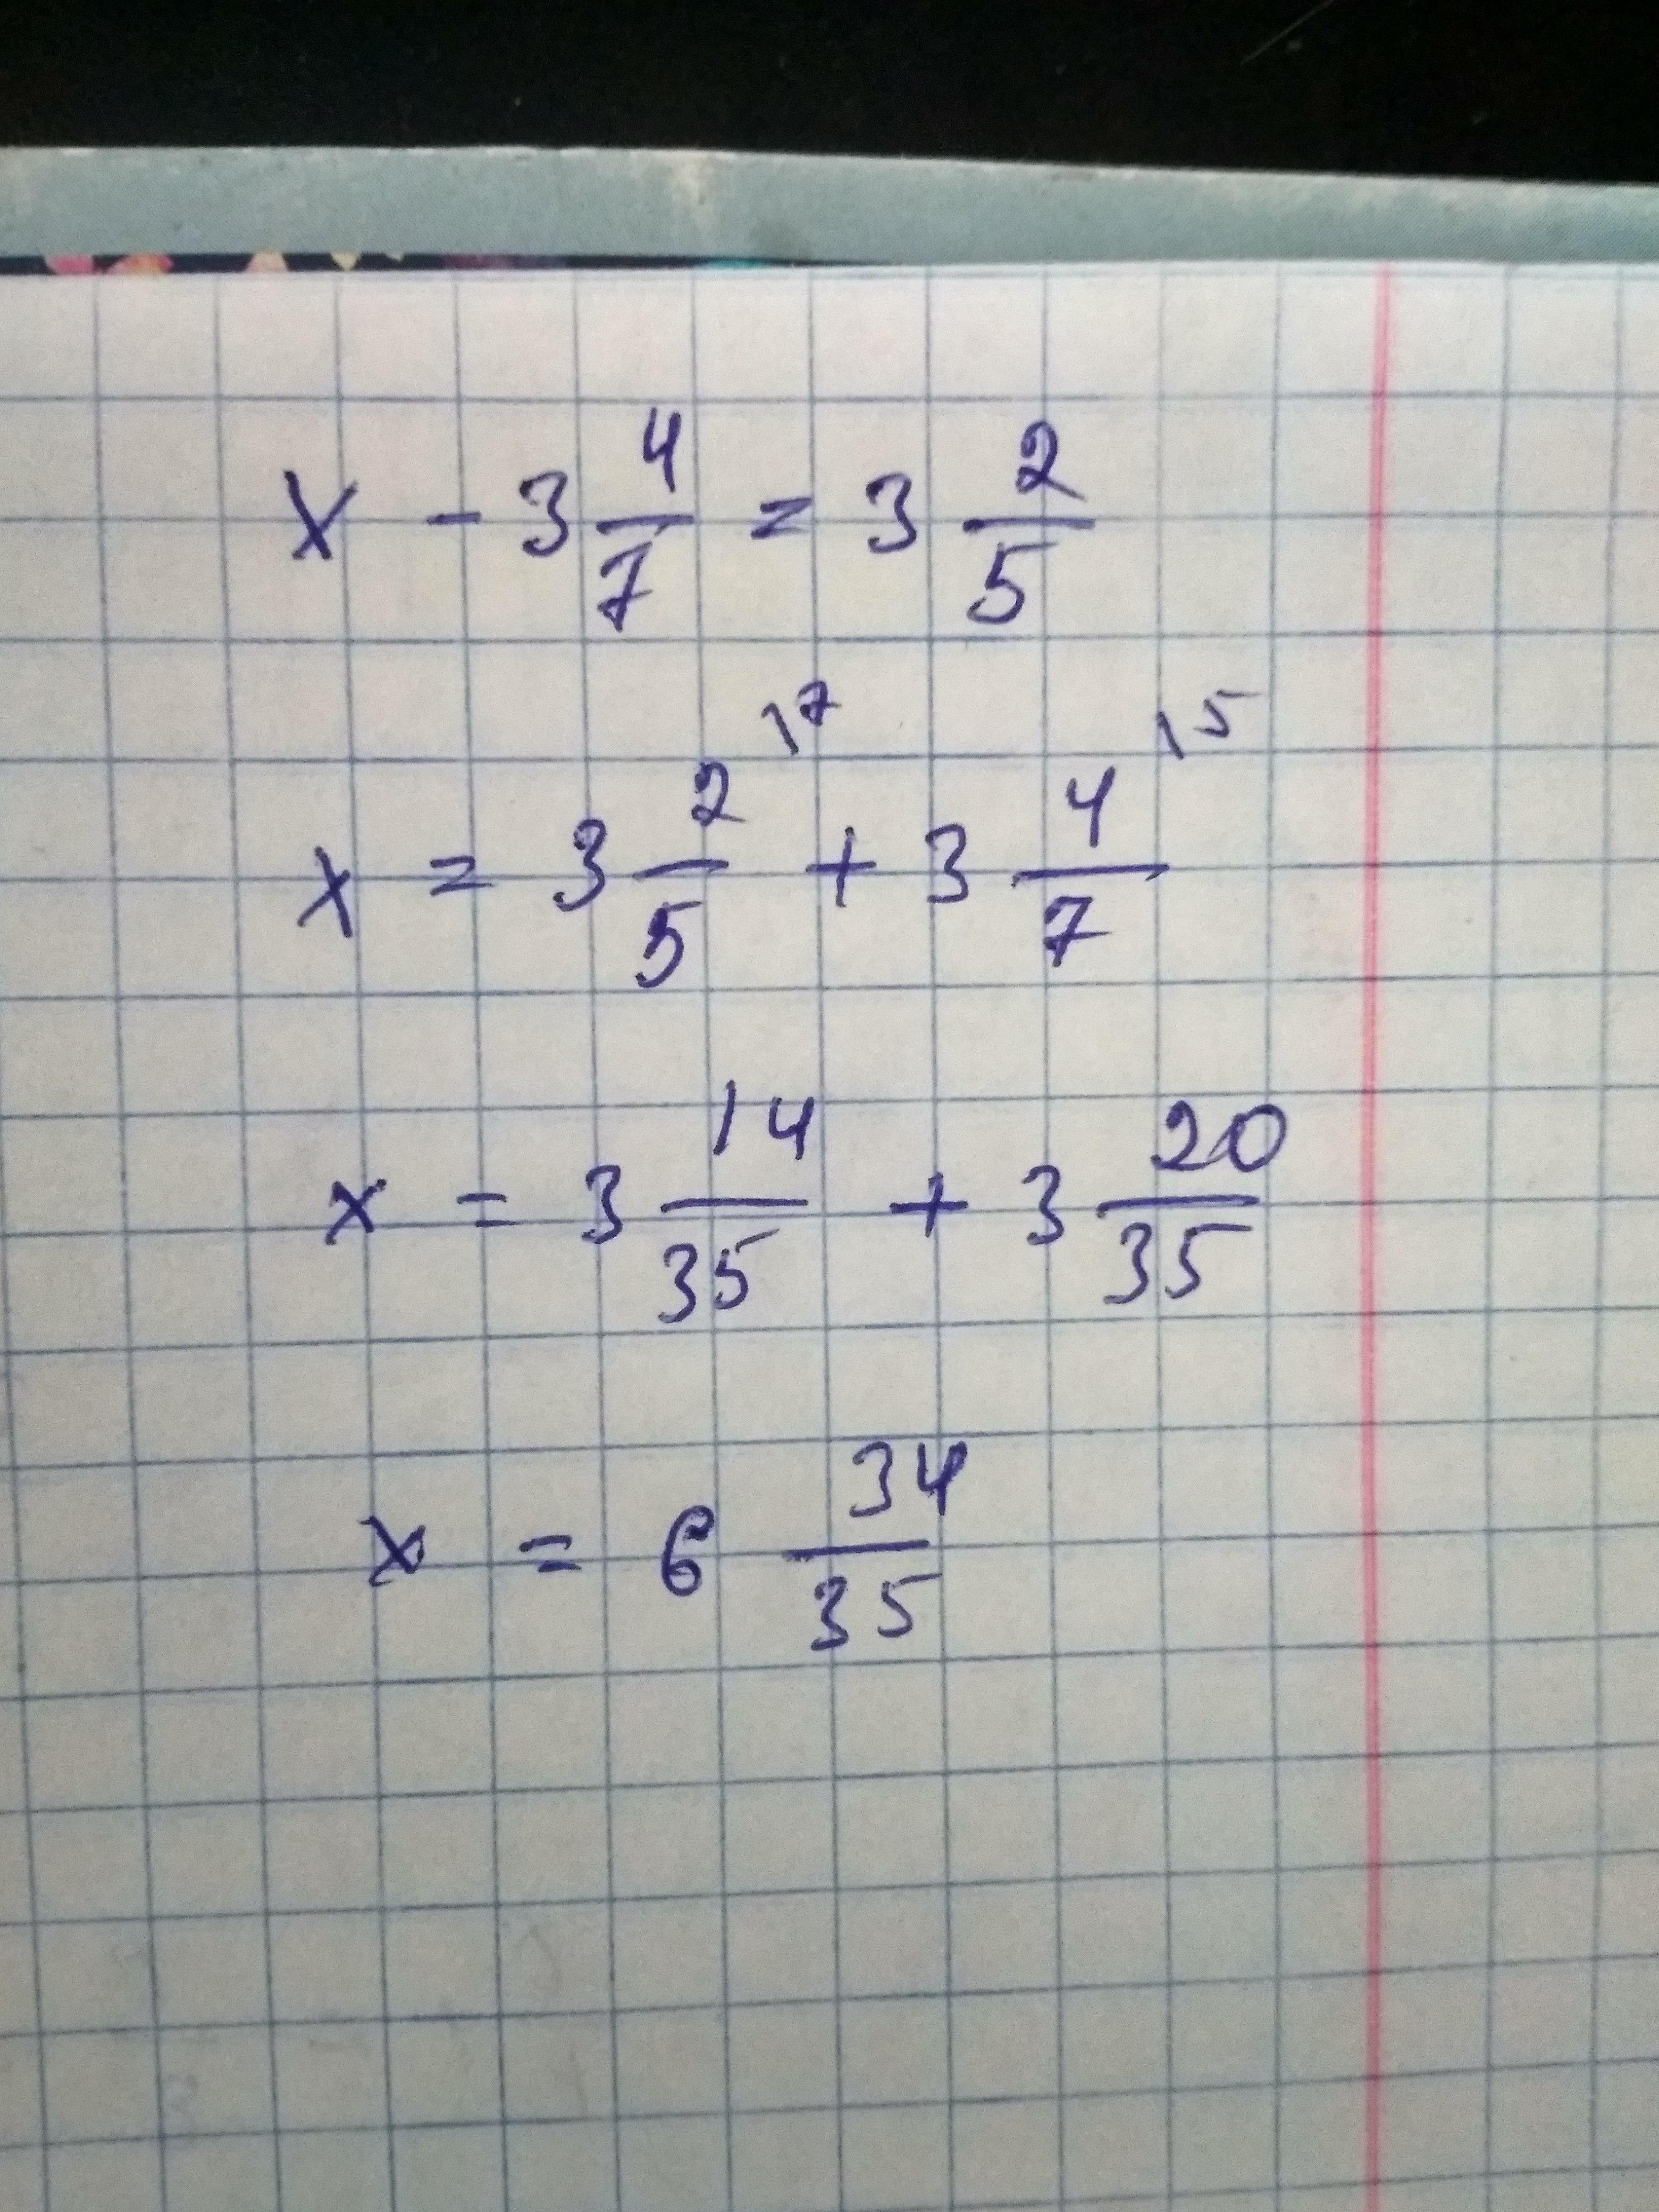 x - 3 4/7 = 3 2/5
x = 3 2/5 \7 + 3 4/7 \5
x = 3 14/35 + 3 20/35
x = 6 34/35